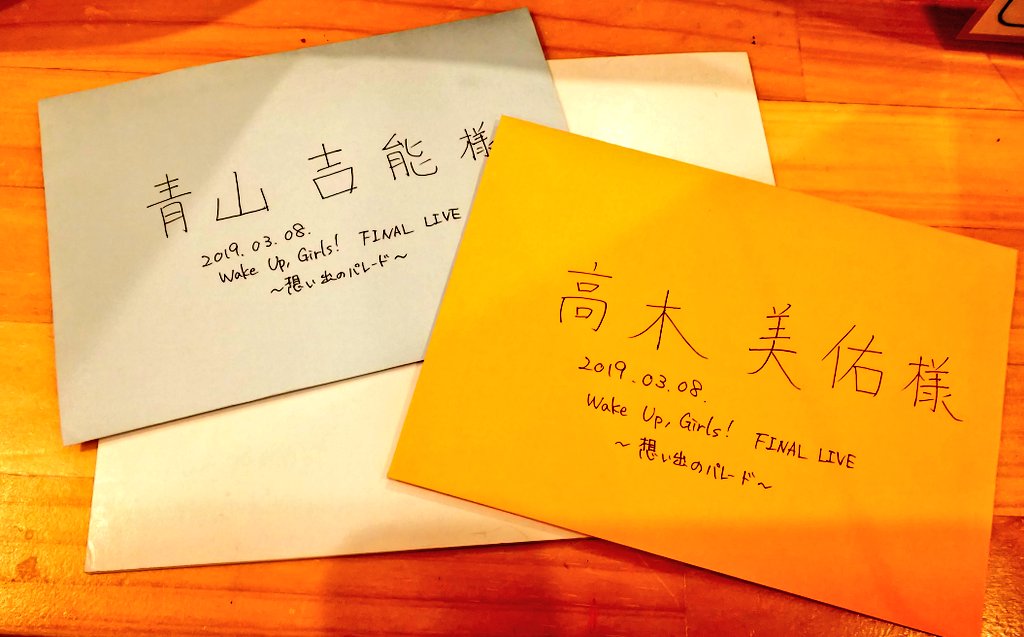 青山 吉能 様
2019.03.08.
Wake Up, Girls! FINAL LIVE
～想い出のパレード～
高木 美佑 様
2019.03.08.
Wake Up, Girls! FINAL LIVE
～想い出のパレード～